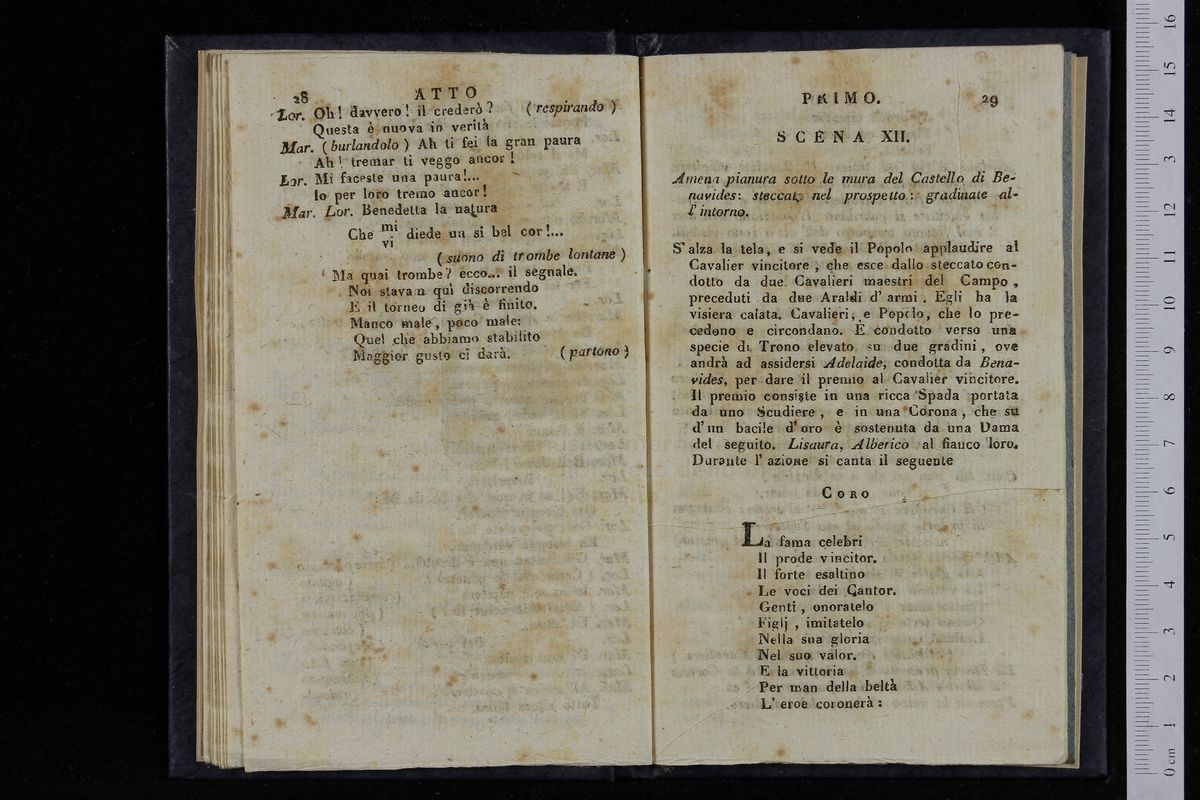 28 ATTO
Lor. Oh! davvero! il crederò? (respirando)
Questa è nuova in verità
Mar. (burlandolo) Ah ti fei la gran paura
Ah! tremar ti veggo ancor!
Lor. Mi faceste una paura!...
Io per loro tremo ancor!
Mar. Lor. Benedetta la natura
Che mi diede un sì bel cor!...
vi
(suono di trombe lontane)
Ma quai trombe? ecco... il segnale.
Noi stavan quì discorrendo
E il torneo di già è finito.
Manco male, poco male:
Quel che abbiamo stabilito
Maggior gusto ci darà. (partono)
PRIMO. 29
SCENA XII.
Amena pianura sotto le mura del Castello di Be-
navides: steccato nel prospetto: gradinate al-
l' intorno.
S' alza la tela, e si vede il Popolo applaudire al
Cavalier vincitore, che esce dallo steccato con-
dotto da due Cavalieri maestri del Campo,
preceduti da due Araldi d' armi. Egli ha la
visiera calata. Cavalieri, e Popolo, che lo pre-
cedono e circondano. È condotto verso una
specie di Trono elevato su due gradini, ove
andrà ad assidersi Adelaide, condotta da Bena-
vides, per dare il premio al Cavalier vincitore.
Il premio consiste in una ricca Spada portata
da uno Scudiere, e in una Corona, che su
d' un bacile d' oro è sostenuta da una Dama
del seguito. Lisaura, Alberico al fianco loro.
Durante l' azione si canta il seguente
CORO
La fama celebri
Il prode vincitor.
Il forte esaltino
Le voci dei Cantor.
Genti, onoratelo
Figlj, imitatelo
Nella sua gloria
Nel suo valor.
E la vittoria
Per man della beltà
L' eroe coronerà:
16
15
14
3
12
11
10
9
8
7
6
5
4
3
2
1
0 cm